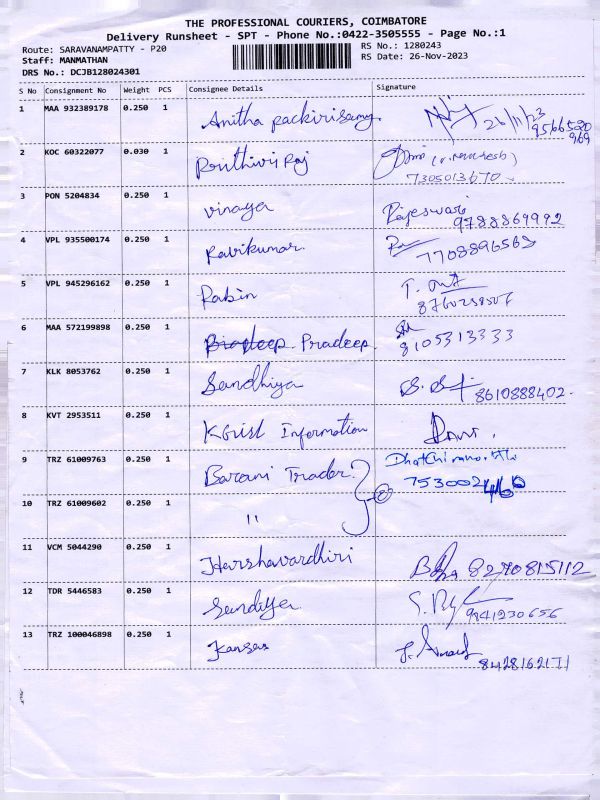 THE PROFESSIONAL COURIERS, COIMBATORE
Delivery Runsheet - SPT - Phone No.:0422-3505555 - Page No.:1
Route: SARAVANAMPATTY - P20
RS No.: 1280243
Staff: MANMATHAN
RS Date: 26-Nov-2023
DRS No.: DCJB128024301
S No Consignment No Weight PCS Consignee Details Signature
1 MAA 932389178 0.250 1 Anitha Packirisamy 26/11/23
9566590
969
2 KOC 60322077 0.030 1 Pruthivi Raj
7305013670
3 PON 5204834 0.250 1 Vinaya Rajeswari
9788869992
4 VPL 935500174 0.250 1 Ravikumar
7708896563
5 VPL 945296162 0.250 1 Rabin
6 MAA 572199898 0.250 1 Pradeep Pradeep.
8105313333
7 KLK 8053762 0.250 1 Sandhiya 8610888402.
8 KVT 2953511 0.250 1 Information
9 TRZ 61009763 0.250 1 Barani Trader
7530024460
10 TRZ 61009602 0.250 1 "
11 VCM 5044290 0.250 1 Harshavardhiri 8270815112
12 TDR 5446583 0.250 1
9941230656
13 TRZ 100046898 0.250 1 Kansas
8428162171